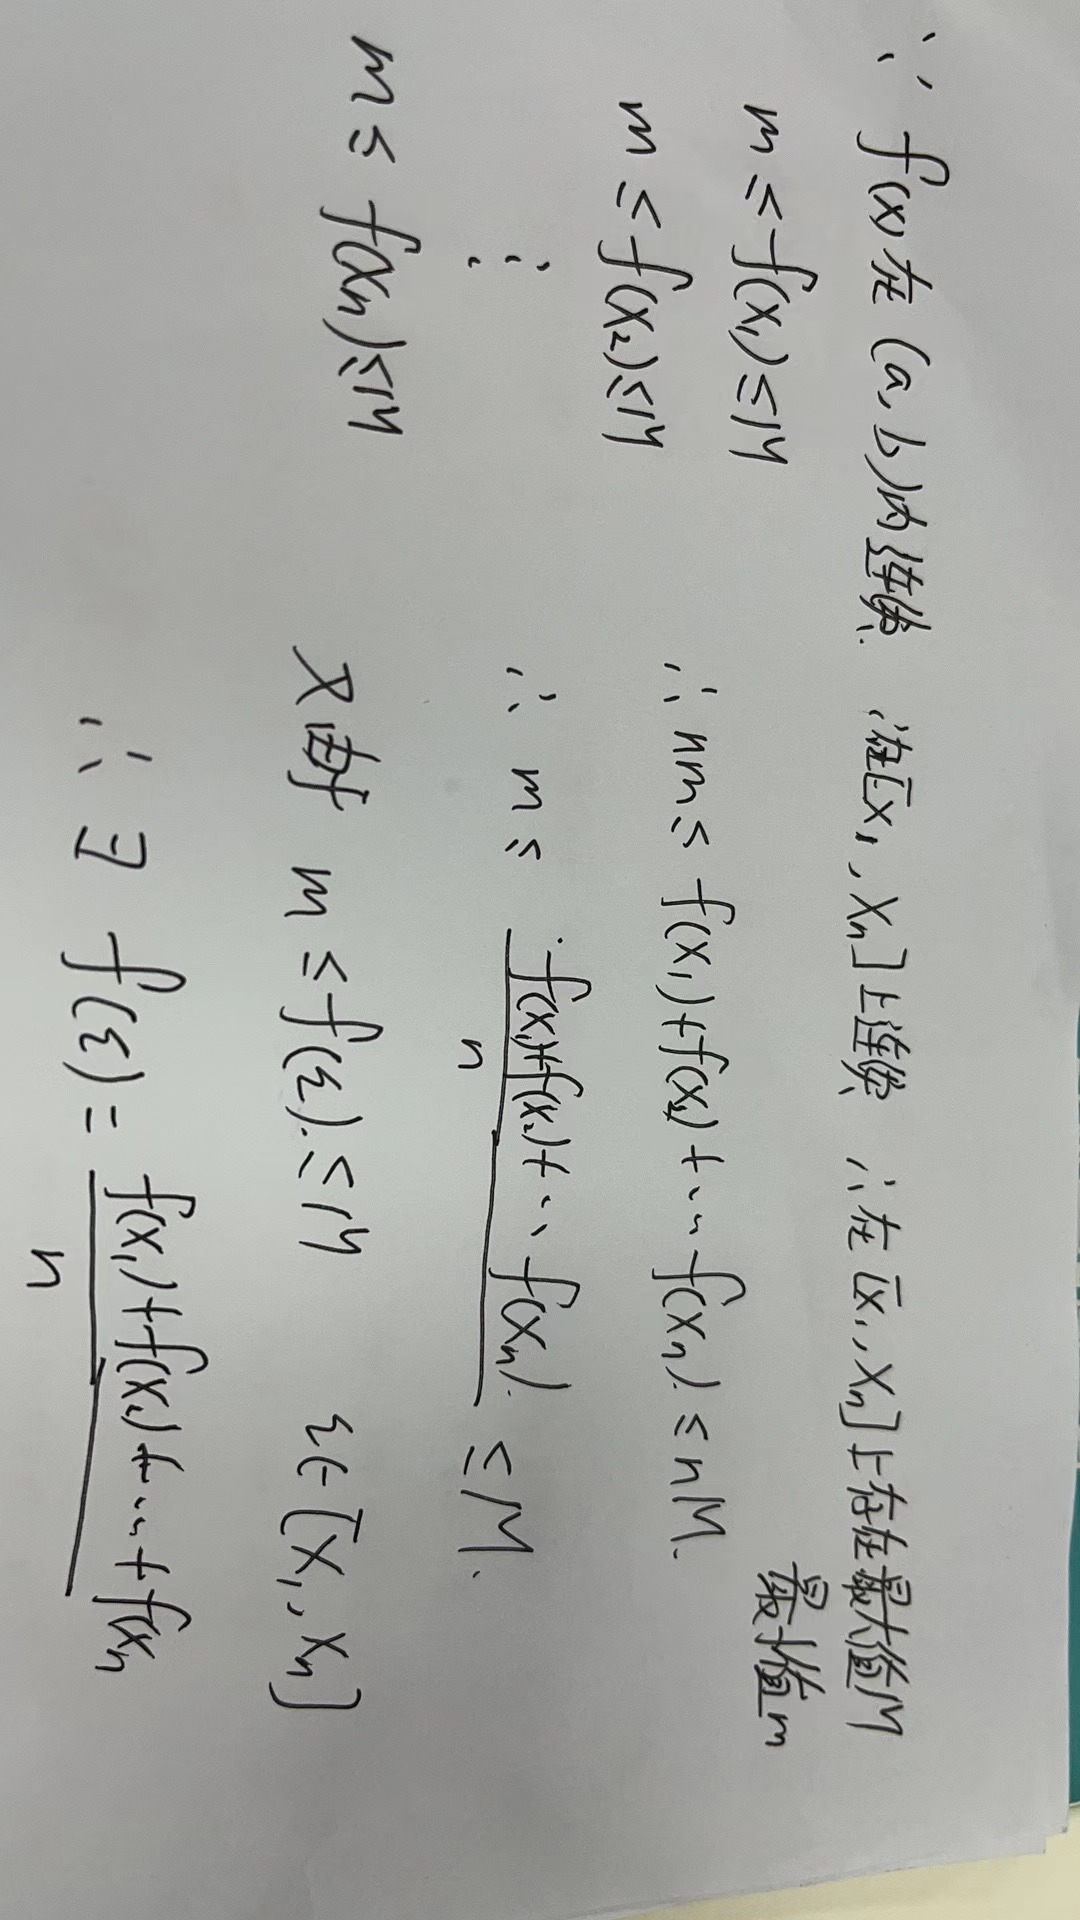 ∵ f(x)在(a,b)内连续 ∴在[x₁,xₙ]上连续 ∴在[x₁,xₙ]上存在最大值M
最小值m
m≤f(x₁)≤M
m≤f(x₂)≤M
⋮
m≤f(xₙ)≤M
∴ nm≤f(x₁)+f(x₂)+…f(xₙ)≤nM.
∴ m≤ f(x₁)+f(x₂)+…f(xₙ) / n ≤M.
又由于 m≤f(ξ)≤M ξ∈[x₁,xₙ]
∴ ∃ f(ξ)= f(x₁)+f(x₂)+…+f(xₙ / n